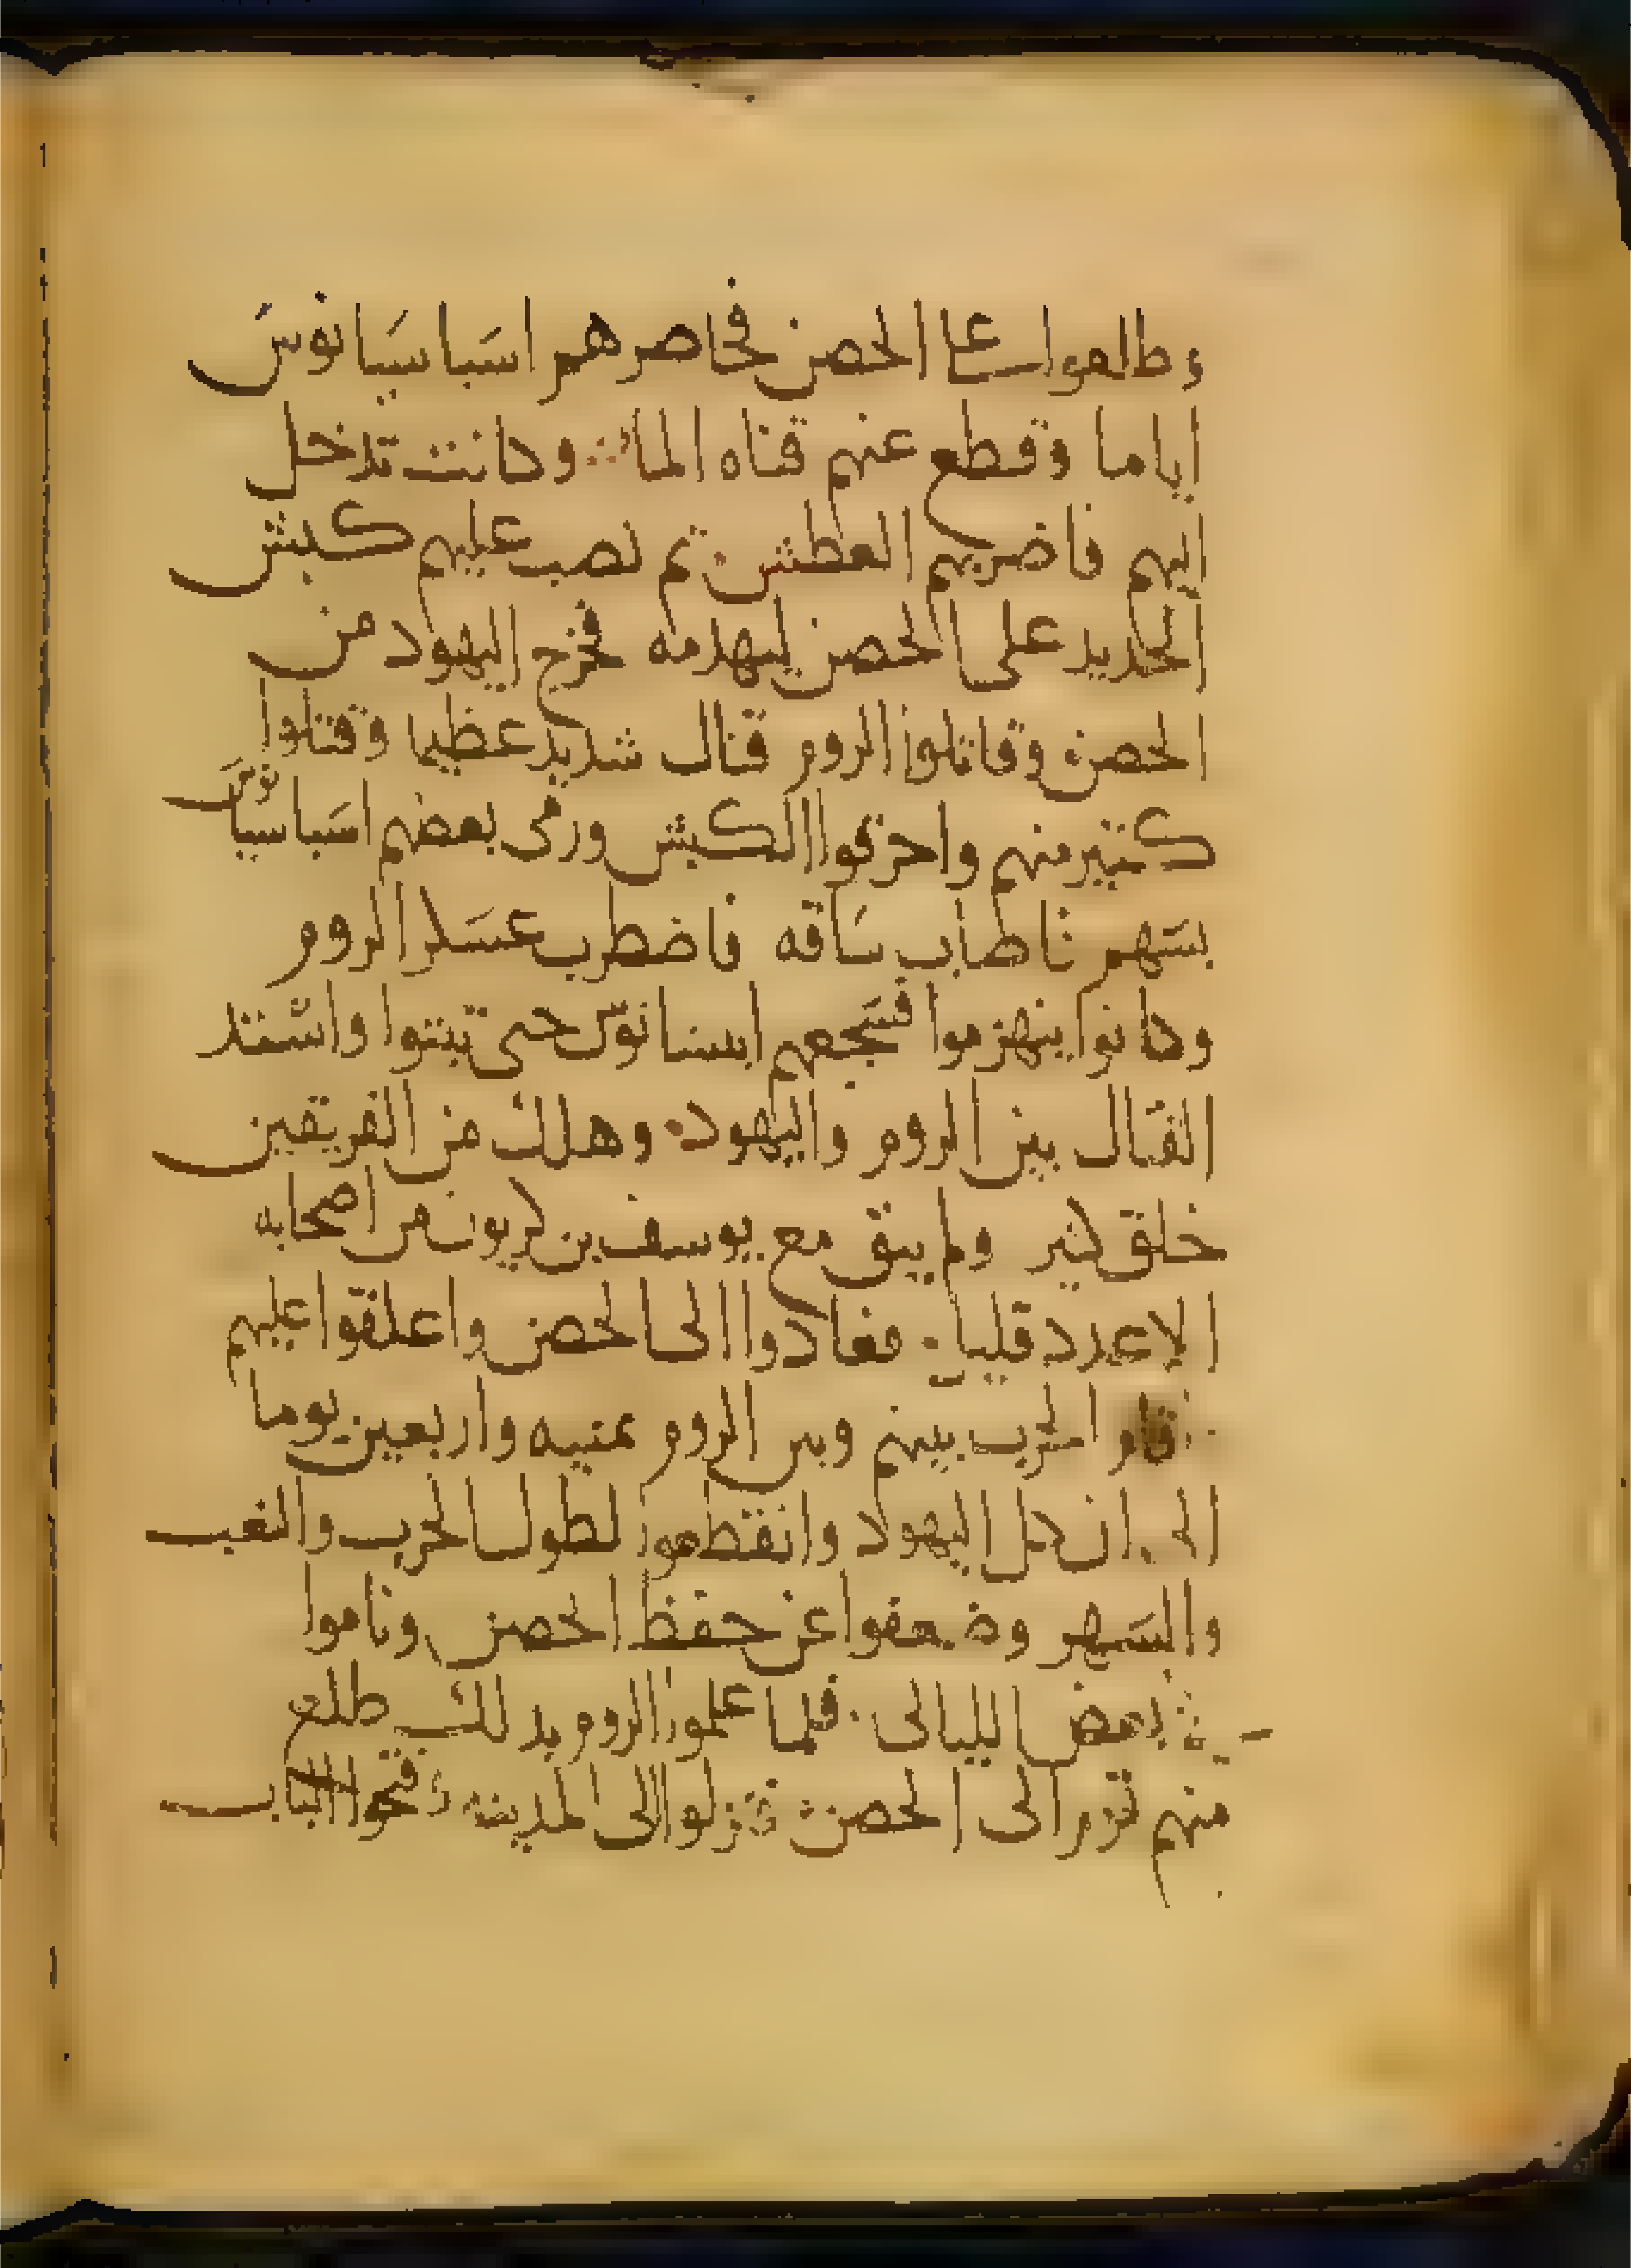 وطلعوا على الحصن فحاصرهم اسباسيانوس
اياما وقطع عنهم قناه الما وكانت تدخل
اليهم فاضر بهم العطش ثم نصب عليهم كبش
الحديد على الحصن ليهدمه فخرج اليهود من
الحصن وقاتلوا الروم قتال شديد عظيما وقتلوا
كثير منهم واحرقوا الكبش ورمى بعضهم اسباسيانوس
بسهم فاصاب ساقه فاضطرب عسكر الروم
وكانوا ينهزموا فشجعهم حتى ثبتوا واشتد
القتال بين الروم واليهود وهلك من الفريقين
خلق كثير ولم يبق مع يوسف بن كريون من اصحابه
الا عدد قليل فعادوا الى الحصن واغلقوا عليهم
فاقام الحرب بينهم وبين الروم ثمنيه واربعين يوما
الى ان كل اليهود وانقطعوا لطول الحرب والتعب
والسهر وضعفوا عن حفظ الحصن وناموا
بعض الليالى فلما علموا الروم بذلك طلع
منهم قوم الى الحصن ونزلوا الى المدينه وفتحوا الباب